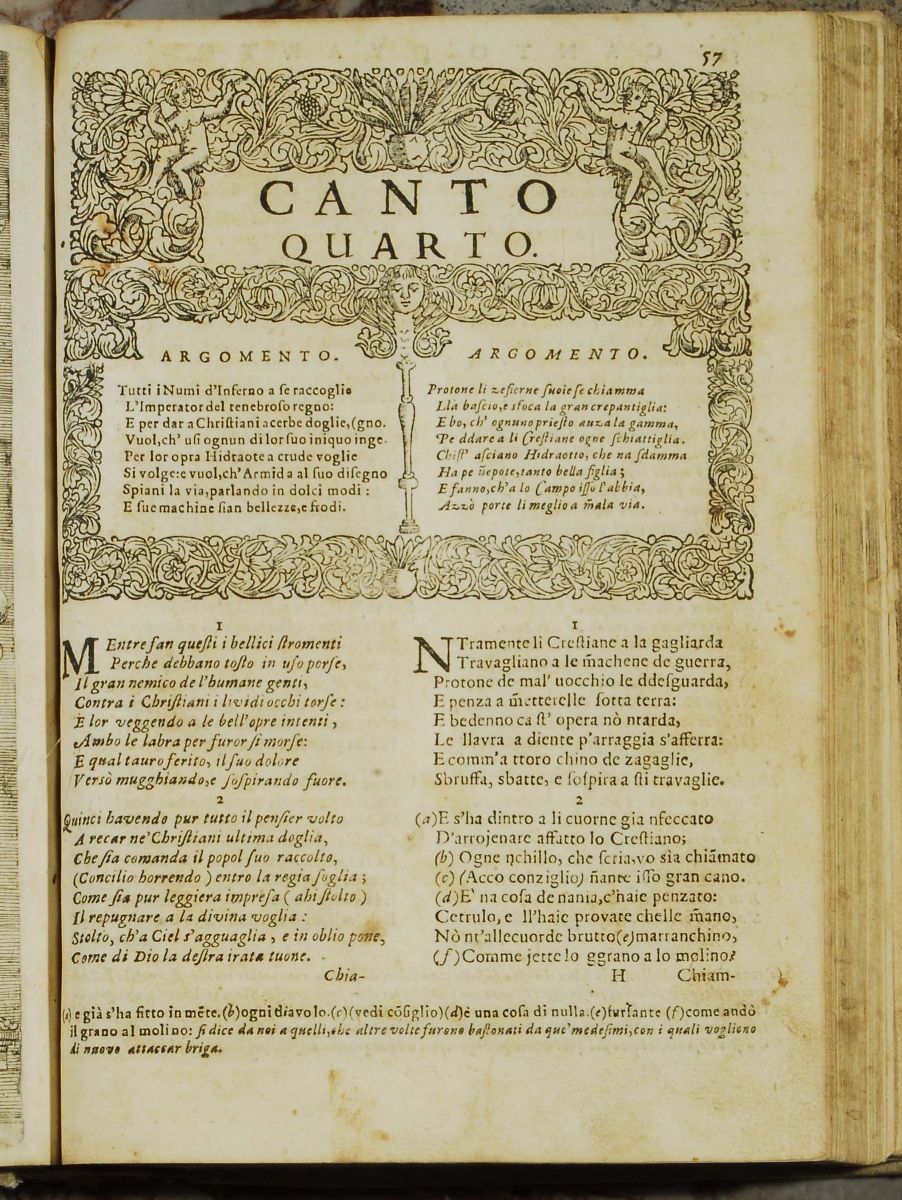 57
CANTO
QUARTO.
ARGOMENTO.
Tutti i Numi d'Inferno a se raccoglie
L'Imperator del tenebroso regno:
E per dar a Christiani acerbe doglie, (gno.
Vuol, ch' usi ognun di lor suo iniquo inge-
Per lor opra Hidraote a crude voglie
Si volge: e vuol, ch'Armida al suo disegno
Spiani la via, parlando in dolci modi:
E sue machine sian bellezze, e frodi.
ARGOMENTO.
Protone li zefierne suoie se chiamma
Lla bascio, e sfoca la gran crepantiglia:
E bo, ch' ognuno priesto auza la gamma,
Pe ddare a li Crestiane ogne schiattiglia.
Chist' asciano Hidraotto, che na sdamma
Ha pe ñepote, tanto bella figlia;
E fanno, ch'a lo Campo isso l'abbia,
Azzò porte li meglio a m̃ala via.
1
MEntre fan questi i bellici stromenti
Perche debbano tosto in uso porse,
Il gran nemico de l'humane genti,
Contra i Christiani i lividi occhi torse:
E lor veggendo a le bell'opre intenti,
Ambo le labra per furor si morse:
E qual tauro ferito, il suo dolore
Versò mugghiando, e sospirando fuore.
2
Quinci havendo pur tutto il pensier volto
A recar ne' Christiani ultima doglia,
Che sia comanda il popol suo raccolto,
(Concilio horrendo) entro la regia soglia;
Come sia pur leggiera impresa (ahi stolto)
Il repugnare a la divina voglia:
Stolto, ch'a Ciel s'agguaglia, e in oblio pone,
Come di Dio la destra irata tuone.
Chia-
1
NTramente li Crestiane a la gagliarda
Travagliano a le m̃achene de guerra,
Protone de mal' uocchio le ddesguarda,
E penza a m̃etterelle sotta terra:
E bedenno ca st' opera nò ntarda,
Le llavra a diente p'arraggia s'afferra:
E comm'a ttoro chino de zagaglie,
Sbruffa, sbatte, e sospira a sti travaglie.
2
(a) E s'ha dintro a li cuorne gia nfeccato
D'arrojenare affatto lo Crestiano;
(b) Ogne nchillo, che seria, vo sia chiam̃ato
(c) (Acco conziglio) ñante isso gran cano.
(d) E' na cosa de nania, c'haie penzato:
Cetrulo, e ll'haie provate chelle m̃ano,
Nò nt'allecuorde brutto (e) marranchino,
(f) Comme jette lo ggrano a lo molino?
H Chiam-
(a) e già s'ha fitto in mẽte. (b) ogni diavolo. (c) (vedi cõsiglio) (d) è una cosa di nulla. (e) furfante (f) come andò
il grano al molino: si dice da noi a quelli, che altre volte furono bastonati da que' medesimi, con i quali vogliono
di nuovo attaccar briga.